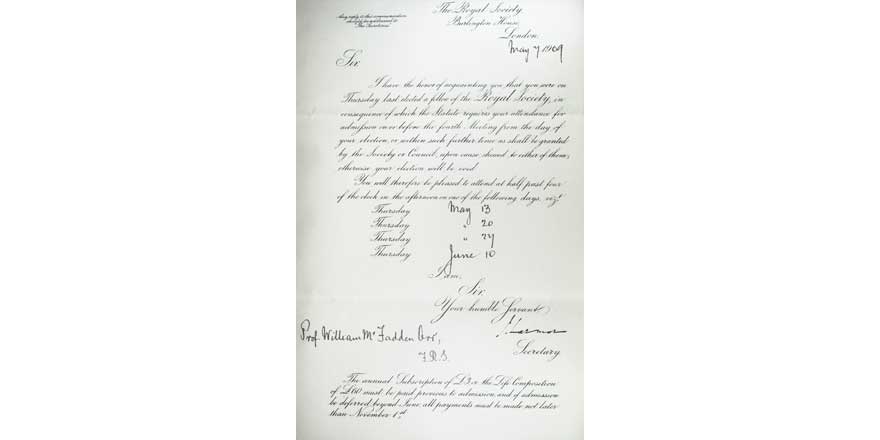 Any reply to this communication
should be addressed to
"The Secretaries"
The Royal Society,
Burlington House,
London.
May 7 1909
Sir,
I have the honor of acquainting you that you were on
Thursday last elected a fellow of the Royal Society, in
consequence of which the Statute requires your attendance for
admission on or before the fourth Meeting from the day of
your election, or within such further time as shall be granted
by the Society or Council, upon cause shewed to either of them;
otherwise your election will be void.
You will therefore be pleased to attend at half past four
of the clock in the afternoon on one of the following days, vizt.
Thursday May 13
Thursday " 20
Thursday " 27
Thursday June 10
I am,
Sir,
Your humble Servant,
J Larmor
Secretary.
Prof. William Mc Fadden Orr,
F.R.S.
The annual Subscription of £3 or the Life Composition
of £60 must be paid previous to admission, and if admission
be deferred beyond June, all payments must be made not later
than November 1st.